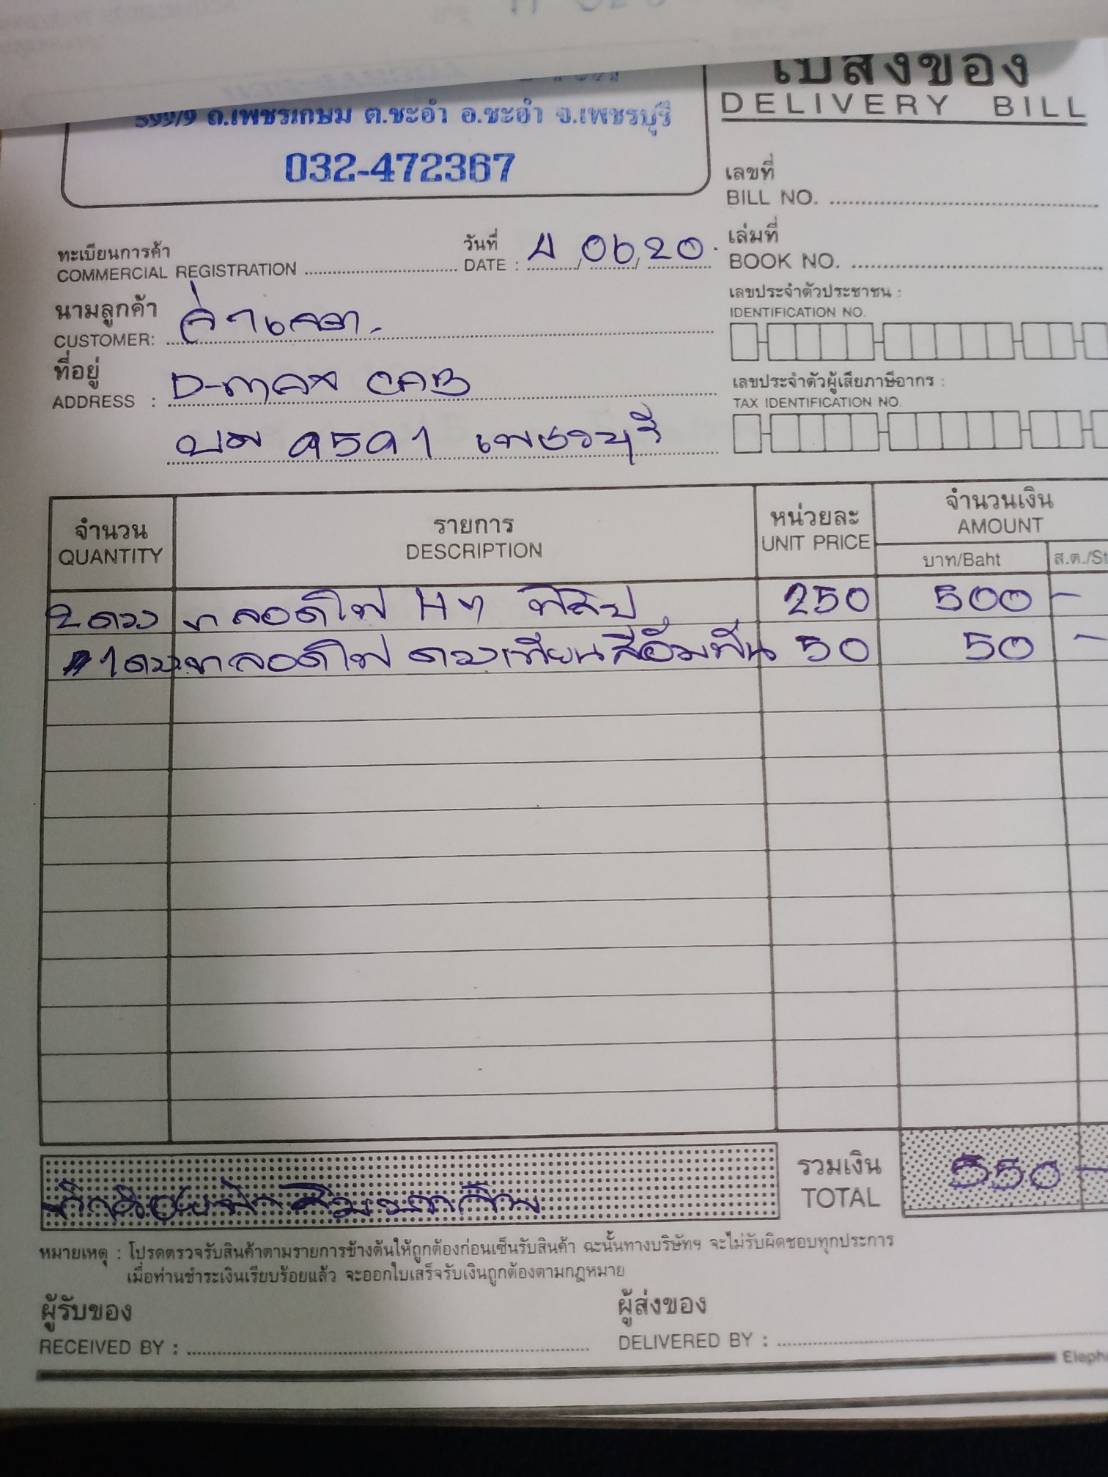 ใบส่งของ
DELIVERY BILL
599/9 ถ.เพชรเกษม ต.ชะอำ อ.ชะอำ จ.เพชรบุรี
032-472367
เลขที่
BILL NO.
ทะเบียนการค้า
COMMERCIAL REGISTRATION
วันที่
DATE : 4/06/20
เล่มที่
BOOK NO.
นามลูกค้า
CUSTOMER:
เลขประจำตัวประชาชน :
IDENTIFICATION NO.
ที่อยู่
ADDRESS : D-max CAB
เลขประจำตัวผู้เสียภาษีอากร :
TAX IDENTIFICATION NO.
เพชรบุรี
จำนวน
QUANTITY
รายการ
DESCRIPTION
หน่วยละ
UNIT PRICE
จำนวนเงิน
AMOUNT
บาท/Baht
ส.ต./St
2 ดวง หลอดไฟ H4 ฟิลิป 250 500 -
1 ดวง หลอดไฟ ดวงเทียนสีอัมพัน 50 50 -
รวมเงิน
TOTAL
550 -
หมายเหตุ : โปรดตรวจรับสินค้าตามรายการข้างต้นให้ถูกต้องก่อนเซ็นรับสินค้า ฉะนั้นทางบริษัทฯ จะไม่รับผิดชอบทุกประการ
เมื่อท่านชำระเงินเรียบร้อยแล้ว จะออกใบเสร็จรับเงินถูกต้องตามกฎหมาย
ผู้รับของ
RECEIVED BY :
ผู้ส่งของ
DELIVERED BY :